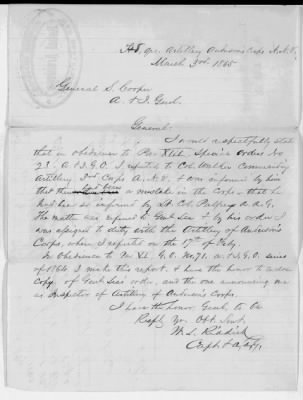 Hd. Qrs. Artillery Anderson's Corps A.N.V.
March 3rd 1865
General S. Cooper
A. & I. Genl.
General:
I would respectfully state
that in obedience to Par XLII Special Orders No
23 A. & I.G.O. I reported to Col. Walker Commanding
Artillery 3rd Corps A.N.V. & was informed by him
that there had been a mistake in the Corps, that he
had been so informed by Lt. Col.
The matter was referred to Genl Lee & by his order I
was assigned to duty with the Artillery of Anderson's
Corps, where I reported on the 17th of Feby.
In obedience to No XI. G.O. No. 71. A. & I.G.O. series
of 1864 I make this report. & have the honor to enclose
copy of Genl Lee's order, and the one announcing me
as Inspector of Artillery of Anderson's Corps.
I have the honor, Genl, to be
Respy Yr. Obt. Servt.
W. L. Riddick
Capt & A.